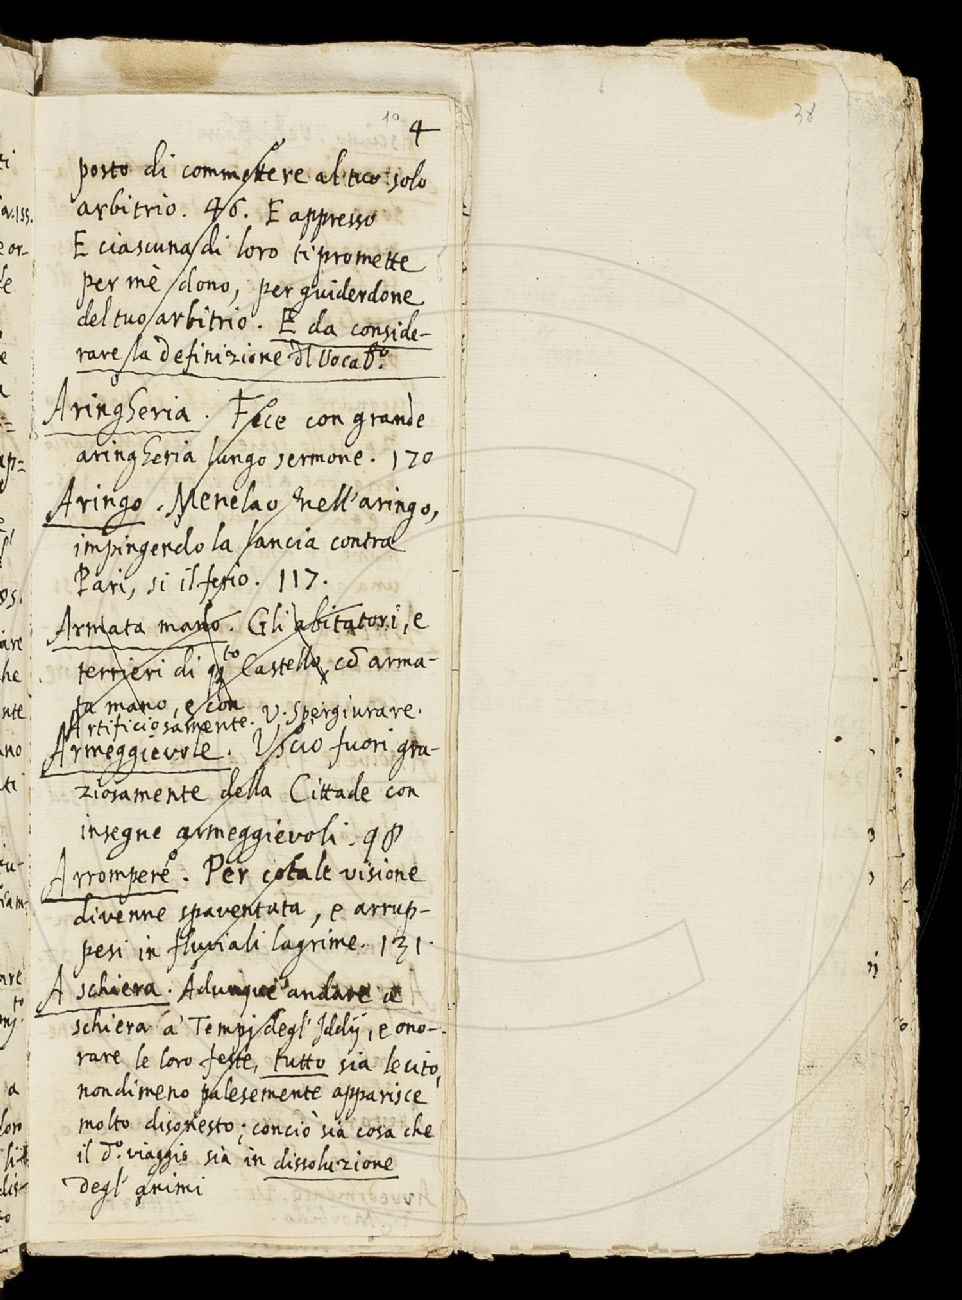 10 4
38
posto di commettere al tuo solo
arbitrio. 46. E appresso
E ciascuna di loro ti promette
per mè dono, per guiderdone
del tuo arbitrio. E da conside-
rare la definizione dl Vocab.º
Aringheria. Fece con grande
aringheria lungo sermone. 170
Aringo. Menelao nell'aringo,
impingendo la lancia contra
Pari, si il ferio. 117.
Armata mano. Gli abitatori, e
terrieri di qto Castello, cō arma-
ta mano, e con
Artificiosamente. V. Spergiurare.
Armeggievole. Uscio fuori gra-
ziosamente della Cittade con
insegne armeggievoli. 98
Arrompere. Per cotale visione
divenne spaventata, e arrup-
pesi in fluviali lagrime. 131.
A schiera. Adunque andare a
schiera a' Tempj degl' Iddij, e ono-
rare le loro feste, tutto sia lecito,
nondimeno palesemente apparisce
molto disonesto; conciò sia cosa che
il d.º viaggio sia in dissoluzione
degl' animi